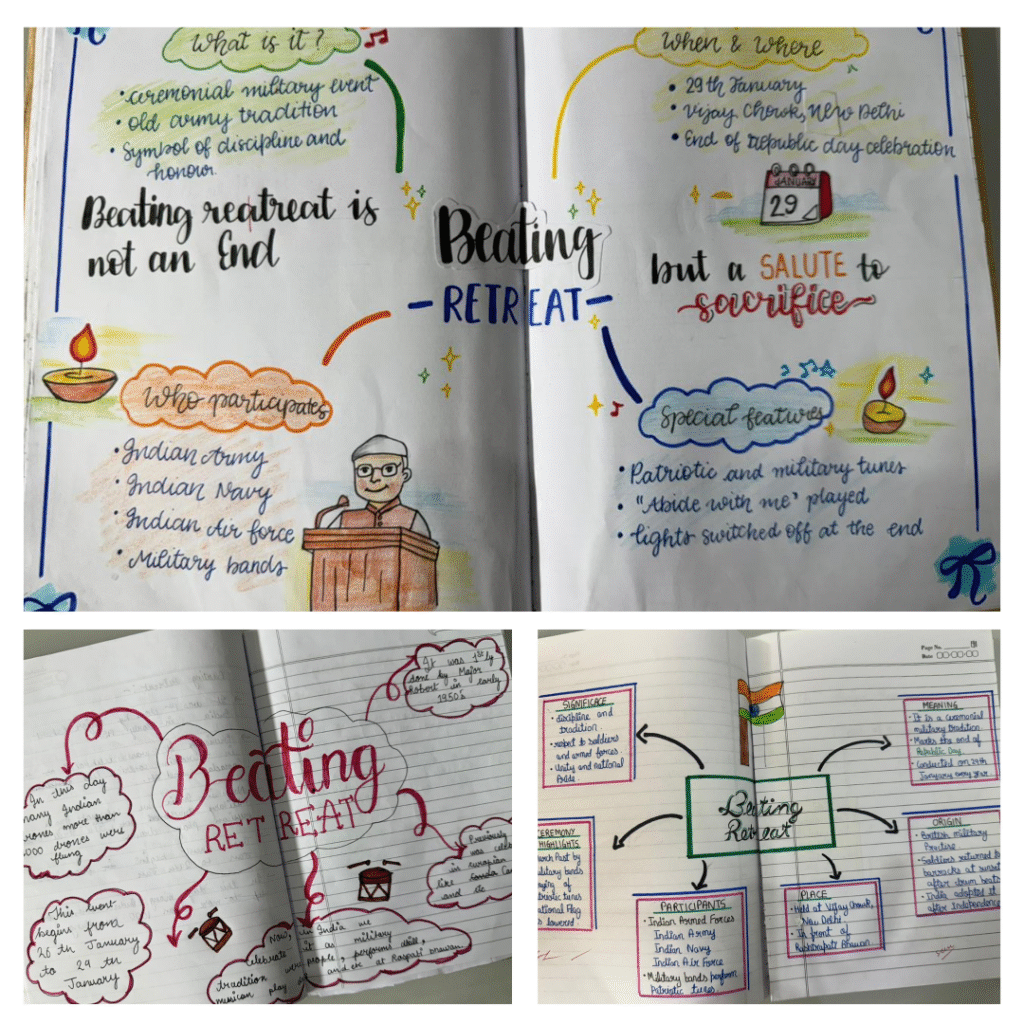 What is it?
• ceremonial military event
• old army tradition
• Symbol of discipline and
honour
When & Where
• 29th January
• Vijay Chowk, New Delhi
• End of Republic day celebration
JANUARY
29
Beating reatreat is
not an End
Beating
- RETREAT -
but a SALUTE to
sacrifice
Who participates
• Indian Army
• Indian Navy
• Indian Air force
• Military bands
Special features
• Patriotic and military tunes
• "Abide with me" played
• lights switched off at the end
It was 1st by
done by Major
Robert in early
1950's
Beating
RETREAT
In this day
many Indian
drones more than
000 drones were
flung
Previously
was celeb
in european
like
and etc
This event
begins from
26 th January
to 29 th
January
Now, in India we
celebrate it as military
tradition were people, perform drill,
musican play and etc at Raspati bhawan
Page No.
Date
SIGNIFICACE
• discipline and
tradition
• respet to soldiers
and armed forces.
• Unity and national
Pride.
MEANING
• It is a ceremonial
military tradition
• Marks the end of
Republic Day
• Conducted on 29th
January every year.
Beating
Retreat
CEREMONY
HIGHLIGHTS
March Past by
military bands
of
tunes
National Flag
is lowered
ORIGIN
• British military
Practise
• Soldiers returned to
barracks at sunset
after drum beats
• India adopted it
after Independence
PARTICIPANTS
• Indian Armed Forces
Indian Army
Indian Navy
Indian Air Force
• Military bands perform
Patriotic tunes.
PLACE
• Held at Vijay Chowk,
New Delhi
• In front of
Rashtrapati Bhawan.